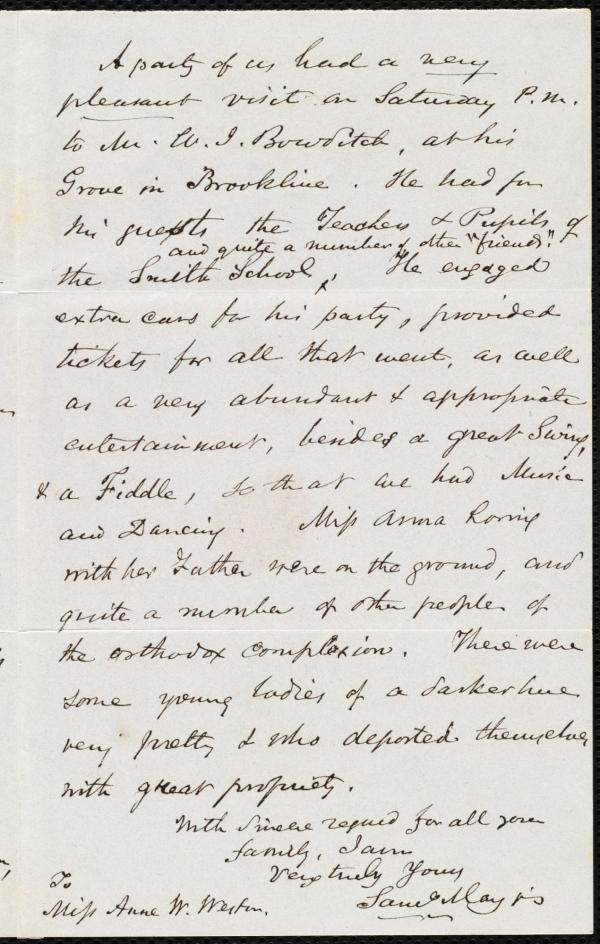 A party of us had a very
pleasant visit on Saturday P.M.
to Mr. W. I. Bowditch, at his
Grove in Brookline. He had for
his guests the Teachers & Pupils of
and quite a number of other "friends".
the Smith School, He engaged
extra cars for his party, provided
tickets for all that went, as well
as a very abundant & appropriate
entertainment, besides a great Swing,
& a Fiddle, so that we had Music
and Dancing. Miss Anna Loring
with her Father were on the ground, and
quite a number of other people of
the orthodox complexion. There were
some young ladies of a darker hue
very pretty & who deported themselves
with great propriety.
With Sincere regard for all your
family, I am
Very truly Yours
Saml. May Jr
To
Miss Anne W. Weston.